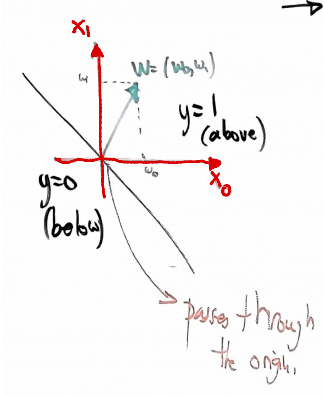 X₁
W=(w₀,w₁)
w₁
y=1
(above)
w₀
X₀
y=0
(below)
passes through
the origin.